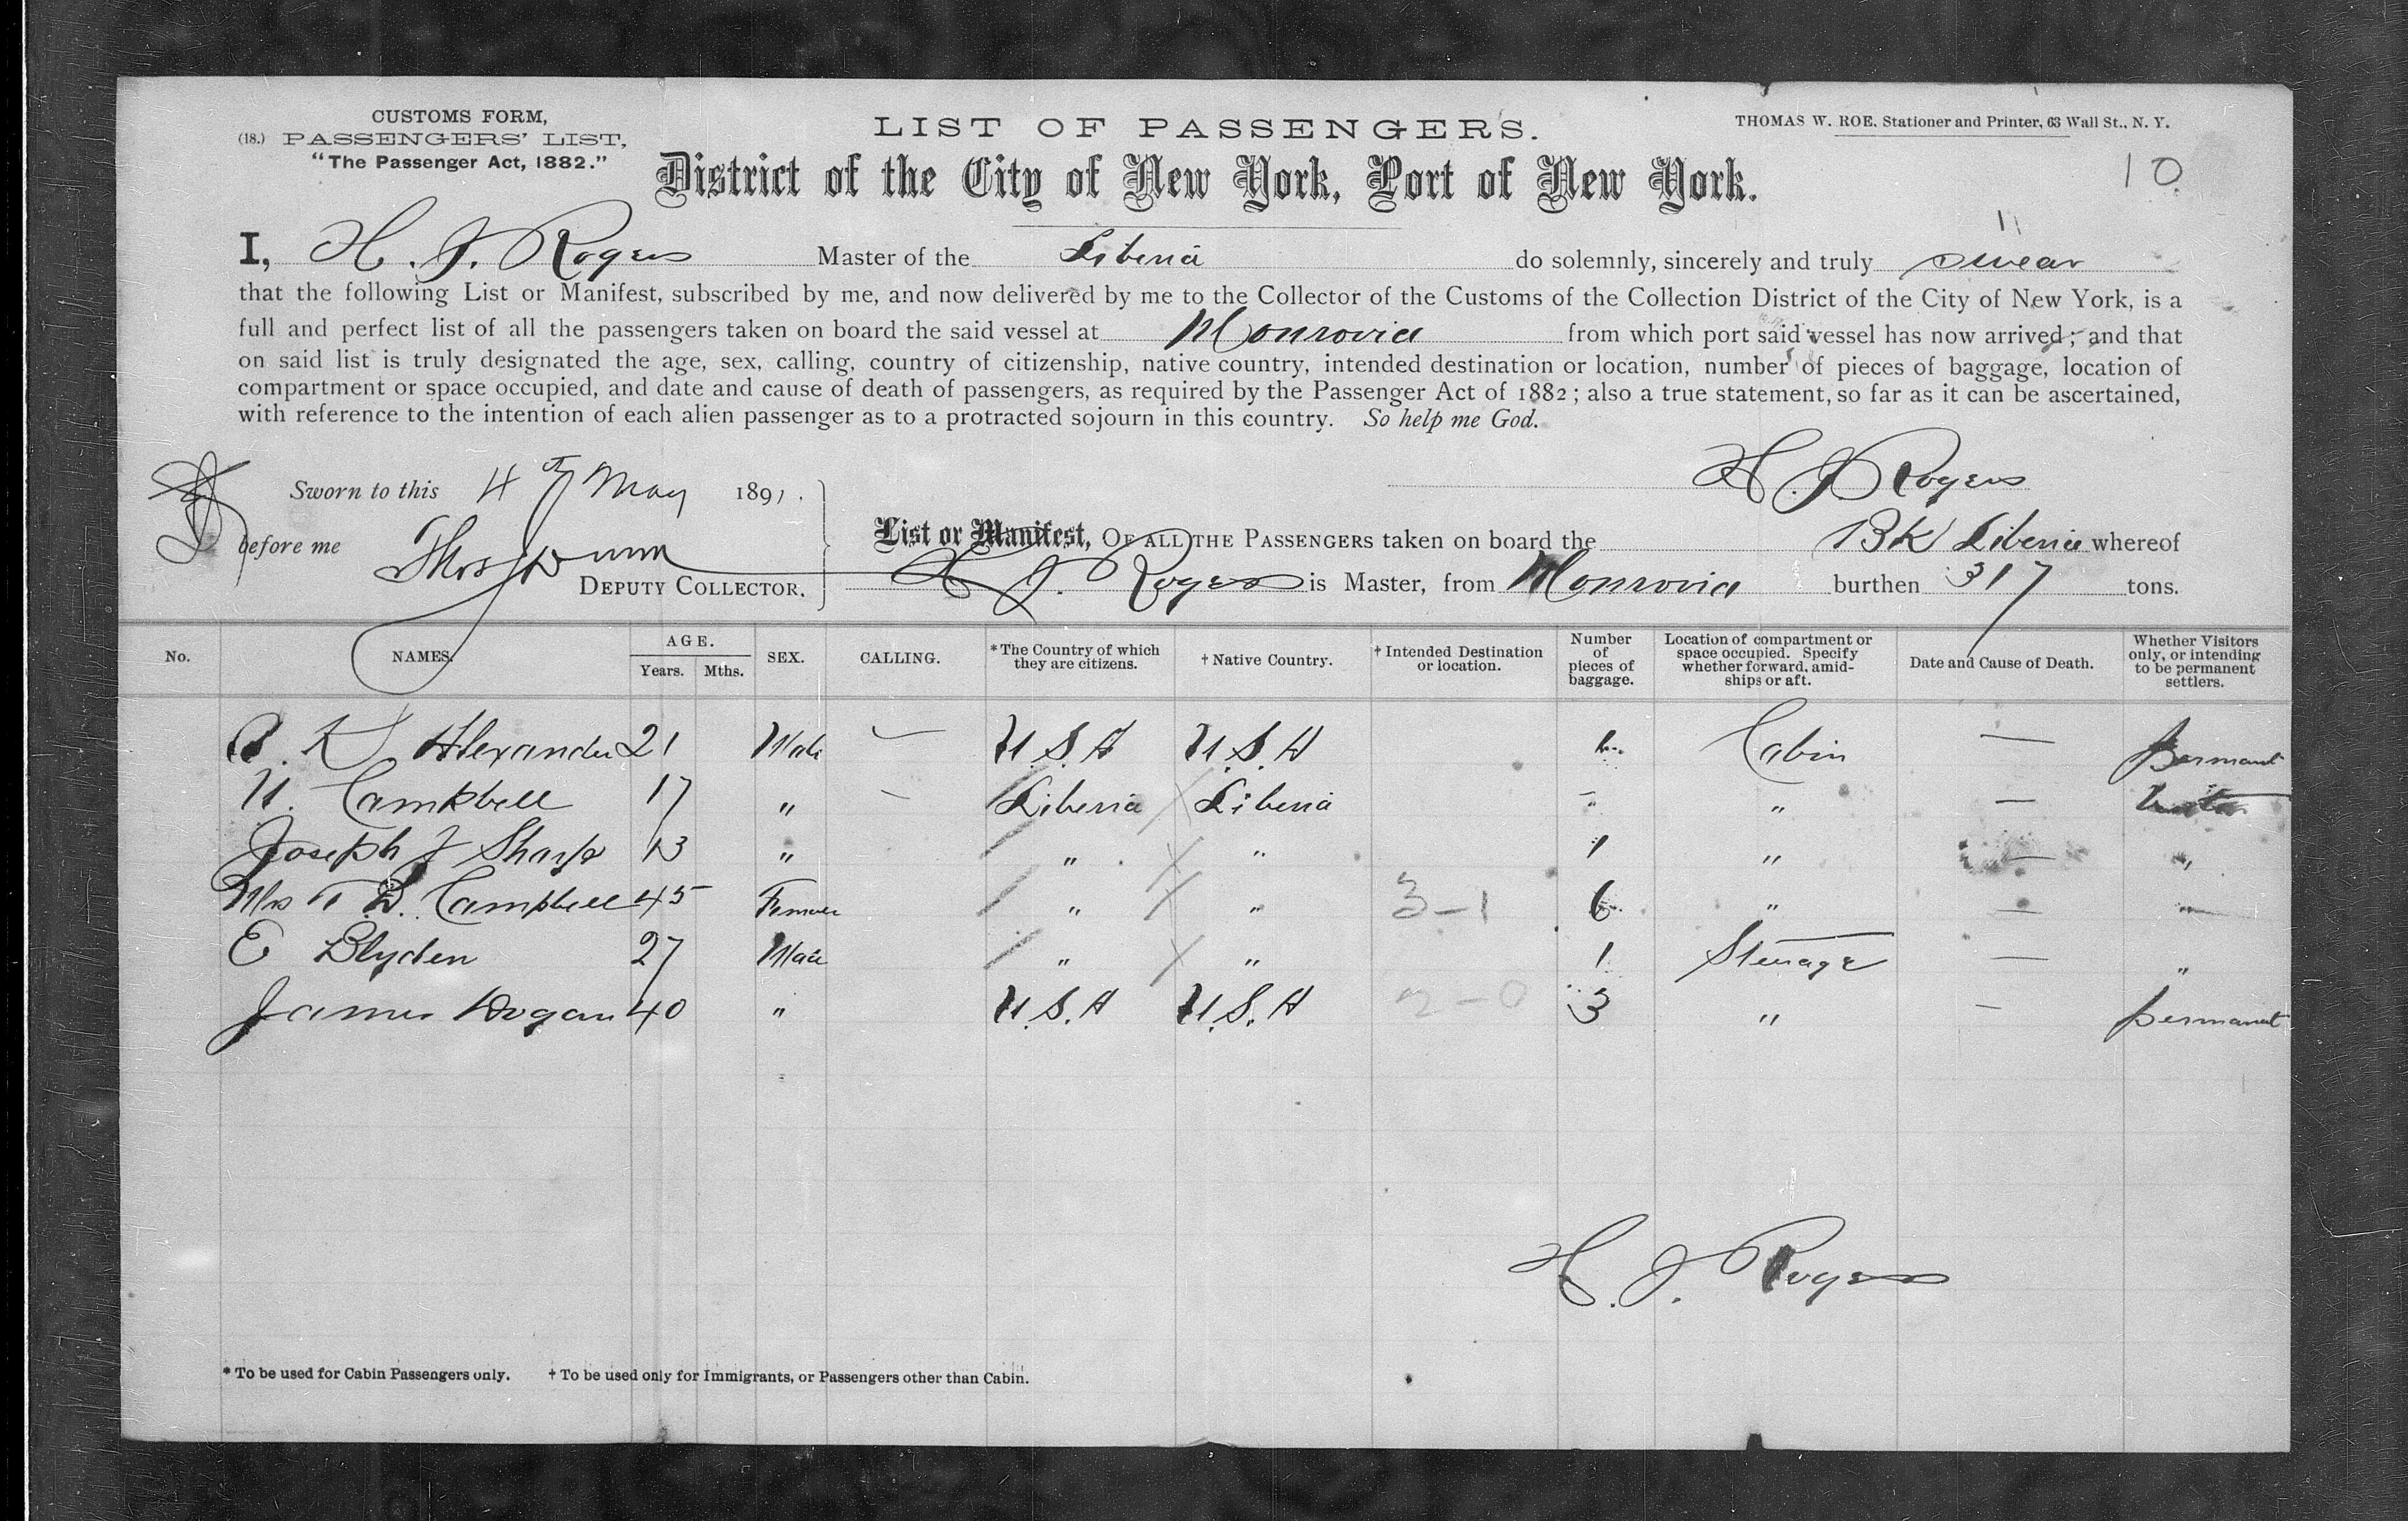 CUSTOMS FORM,
(18.) PASSENGERS' LIST,
"The Passenger Act, 1882."
LIST OF PASSENGERS.
THOMAS W. ROE. Stationer and Printer, 63 Wall St., N. Y.
District of the City of New York, Port of New York.
10
11
I, H. J. Rogers Master of the Liberia do solemnly, sincerely and truly swear
that the following List or Manifest, subscribed by me, and now delivered by me to the Collector of the Customs of the Collection District of the City of New York, is a
full and perfect list of all the passengers taken on board the said vessel at Monrovia from which port said vessel has now arrived; and that
on said list is truly designated the age, sex, calling, country of citizenship, native country, intended destination or location, number of pieces of baggage, location of
compartment or space occupied, and date and cause of death of passengers, as required by the Passenger Act of 1882; also a true statement, so far as it can be ascertained,
with reference to the intention of each alien passenger as to a protracted sojourn in this country. So help me God.
H. J. Rogers
Sworn to this 4th May 1891.
before me Thos Dunn
DEPUTY COLLECTOR.
List or Manifest, OF ALL THE PASSENGERS taken on board the Bk Liberia whereof
H. J. Rogers is Master, from Monrovia burthen 317 tons.
No. NAMES. AGE. Years. Mths. SEX. CALLING. *The Country of which they are citizens. † Native Country. † Intended Destination or location. Number of pieces of baggage. Location of compartment or space occupied. Specify whether forward, amidships or aft. Date and Cause of Death. Whether Visitors only, or intending to be permanent settlers.
K Alexander 21 Male — U.S.A U.S.A Cabin — permant
Campbell 17 " — Liberia Liberia " "  —
Joseph J Sharp 13 " " " 1 " — "
Mrs T. D. Campbell 45 Female " " 3-1 6 " — "
E Blyden 27 Male " " 1 Steerage — "
James Hogan 40 " U.S.A U.S.A 2-0 3 " — permanent
H. J. Rogers
* To be used for Cabin Passengers only. † To be used only for Immigrants, or Passengers other than Cabin.